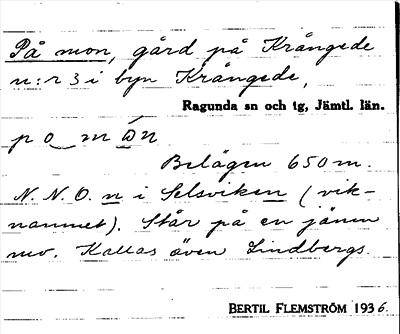 På mon, gård på Krångede
n:r 3 i byn Krångede,
Ragunda sn och tg, Jämtl. län.
Belägen 650 m.
N. N. O. n i Selsviken (vik-
namnet). Står på en jämn
mo. Kallas även Lindbergs.
BERTIL FLEMSTRÖM 1936.